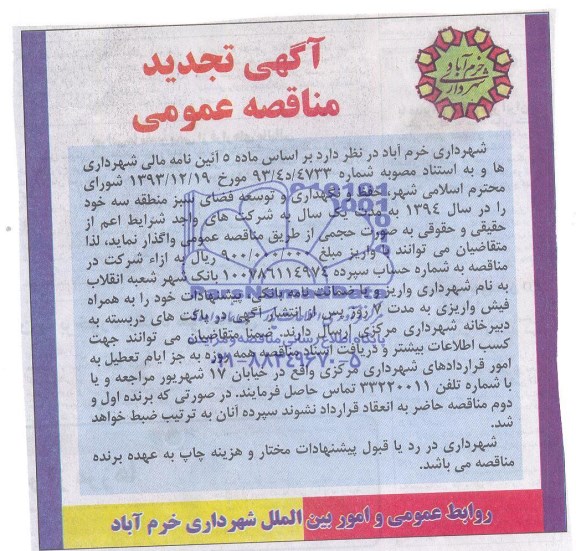 خرم آباد
شهرداری
آگهی تجدید
مناقصه عمومی
شهرداری خرم آباد در نظر دارد بر اساس ماده ۵ آئین نامه مالی شهرداری
ها و به استناد مصوبه شماره ۹۳/د۴/۴۷۳۳ مورخ ۱۳۹۳/۱۲/۱۹ شورای
محترم اسلامی شهر، حفظ و نگهداری و توسعه فضای سبز منطقه سه خود
را در سال ۱۳۹۴ به مدت یک سال به شرکت های واجد شرایط اعم از
حقیقی و حقوقی به صورت حجمی از طریق مناقصه عمومی واگذار نماید، لذا
متقاضیان می توانند با واریز مبلغ ۹۰۰/۰۰۰/۰۰۰ ریال به ازاء شرکت در
مناقصه به شماره حساب سپرده ۱۰۰۷۸۶۱۱۴۹۷۴ بانک شهر شعبه انقلاب
به نام شهرداری واریز و یا ضمانت نامه بانکی، پیشنهادات خود را به همراه
فیش واریزی به مدت ۷ روز پس از انتشار آگهی در پاکت های دربسته به
دبیرخانه شهرداری مرکزی ارسال دارند. ضمنا متقاضیان می توانند جهت
کسب اطلاعات بیشتر و دریافت اسناد مناقصه همه روزه به جز ایام تعطیل به
امور قراردادهای شهرداری مرکزی واقع در خیابان ۱۷ شهریور مراجعه و یا
با شماره تلفن ۳۳۲۲۰۰۱۱ تماس حاصل فرمایند. در صورتی که برنده اول و
دوم مناقصه حاضر به انعقاد قرارداد نشوند سپرده آنان به ترتیب ضبط خواهد
شد.
شهرداری در رد یا قبول پیشنهادات مختار و هزینه چاپ به عهده برنده
مناقصه می باشد.
روابط عمومی و امور بین الملل شهرداری خرم آباد
ParsNamadData
پایگاه اطلاع رسانی مناقصه و مزایده
۰۲۱-۸۸۳۴۹۶۷۰-۵